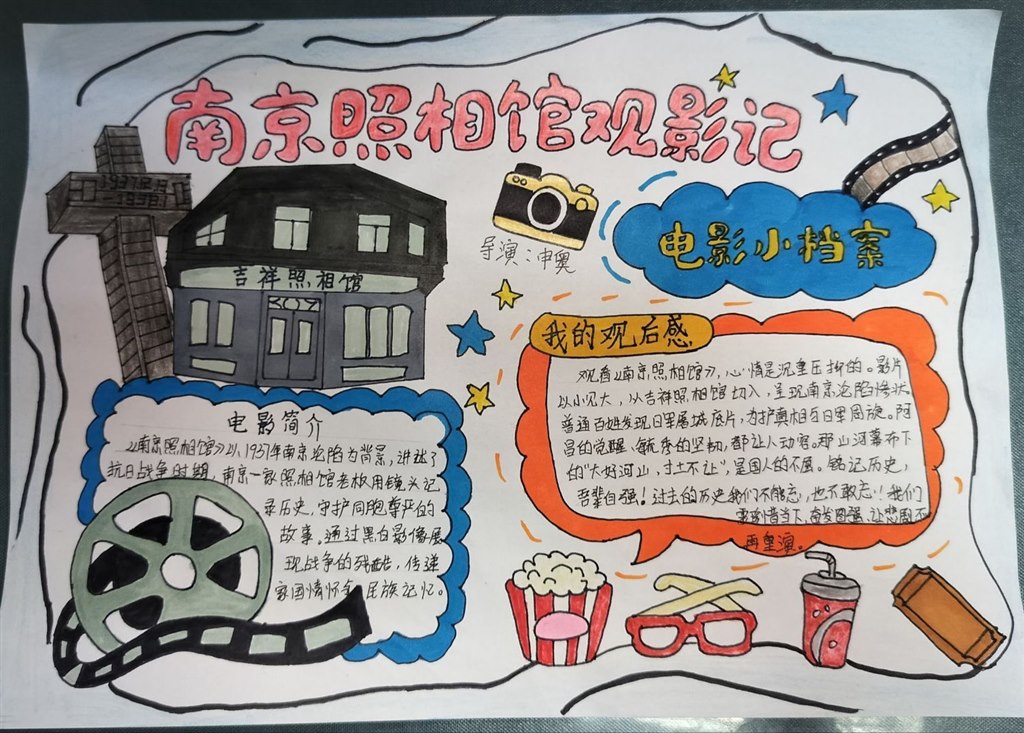 南京照相馆观影记
1937.12.13
-1938.1
吉祥照相馆
导演：申奥
电影小档案
我的观后感
观看《南京照相馆》，心情是沉重压抑的。影片
以小见大，从吉祥照相馆切入，呈现南京沦陷惨状
普通百姓发现日军屠城底片，为护真相与日军周旋。阿
昌的觉醒、毓秀的坚韧，都让人动容。那山河幕布下
的“大好河山，寸土不让”，是国人的不屈。铭记历史，
吾辈自强！过去的历史我们不能忘，也不敢忘！我们
要珍惜当下，奋发图强，让悲剧不
再重演。
电影简介
《南京照相馆》以1937年南京沦陷为背景，讲述了
抗日战争时期，南京一家照相馆老板用镜头记
录历史，守护同胞尊严的
故事。通过黑白影像展
现战争的残酷，传递
家国情怀和民族记忆。